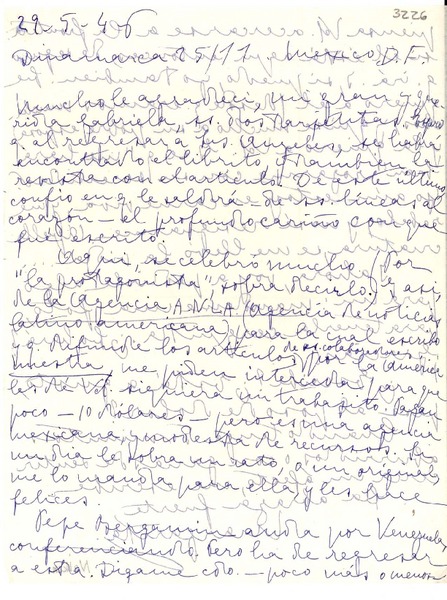 3226
29-5-46
Dinamarca 25/11 Mexico, D.F.
Mucho le agradecí, mi gran y que
rida Gabriela, sus dos tarjetitas.
q. al regresar a Los Angeles, se habrá
encontrado el librito y también la
revista con el artículo. De este último
confío en q. le saldrá de sus líneas al
corazón - el profundo cariño con que
fue escrito.
Aquí se celebró mucho, (por
"la protagonista" sobra decirlo) y así
de la Agencia A.N.L.A. (Agencia de noticias
latino americana) para la cual escribo
y q. difunde los artículos de sus colaboradores por la América
nuestra, me piden interceda para que
les dé Vd. siquiera un trabajito. Pagan
poco - 10 dólares - pero es una agencia
mexicana, y modesta de recursos. Si
un día le sobra un rato, o un original,
me lo manda para ella, y les hace
felices.
Pepe Bergamín anda por Venezuela
conferenciando. Pero ha de regresar
a esta. Dígame cdo. - poco más o menos